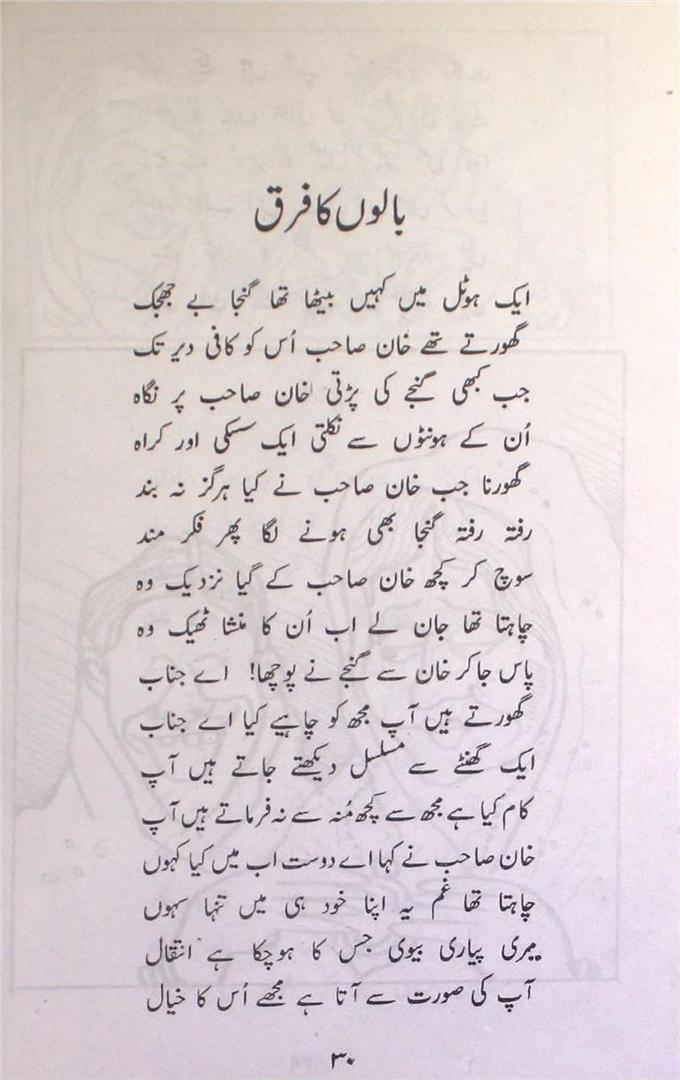 بالوں کا فرق
ایک ہوٹل میں کہیں بیٹھا تھا گنجا بے جھجک
گھورتے تھے خان صاحب اُس کو کافی دیر تک
جب کبھی گنجے کی پڑتی خان صاحب پر نگاہ
اُن کے ہونٹوں سے نکلتی ایک سسکی اور کراہ
گھورنا جب خان صاحب نے کیا ہرگز نہ بند
رفتہ رفتہ گنجا بھی ہونے لگا پھر فکر مند
سوچ کر کچھ خان صاحب کے گیا نزدیک وہ
چاہتا تھا جان لے اب اُن کا منشا ٹھیک وہ
پاس جاکر خان سے گنجے نے پوچھا! اے جناب
گھورتے ہیں آپ مجھ کو چاہیے کیا اے جناب
ایک گھنٹے سے مسلسل دیکھتے جاتے ہیں آپ
کام کیا ہے مجھ سے کچھ مُنہ سے نہ فرماتے ہیں آپ
خان صاحب نے کہا اے دوست اب میں کیا کہوں
چاہتا تھا غم یہ اپنا خود ہی میں تنہا سہوں
میری پیاری بیوی جس کا ہوچکا ہے انتقال
آپ کی صورت سے آتا ہے مجھے اُس کا خیال
۳۰